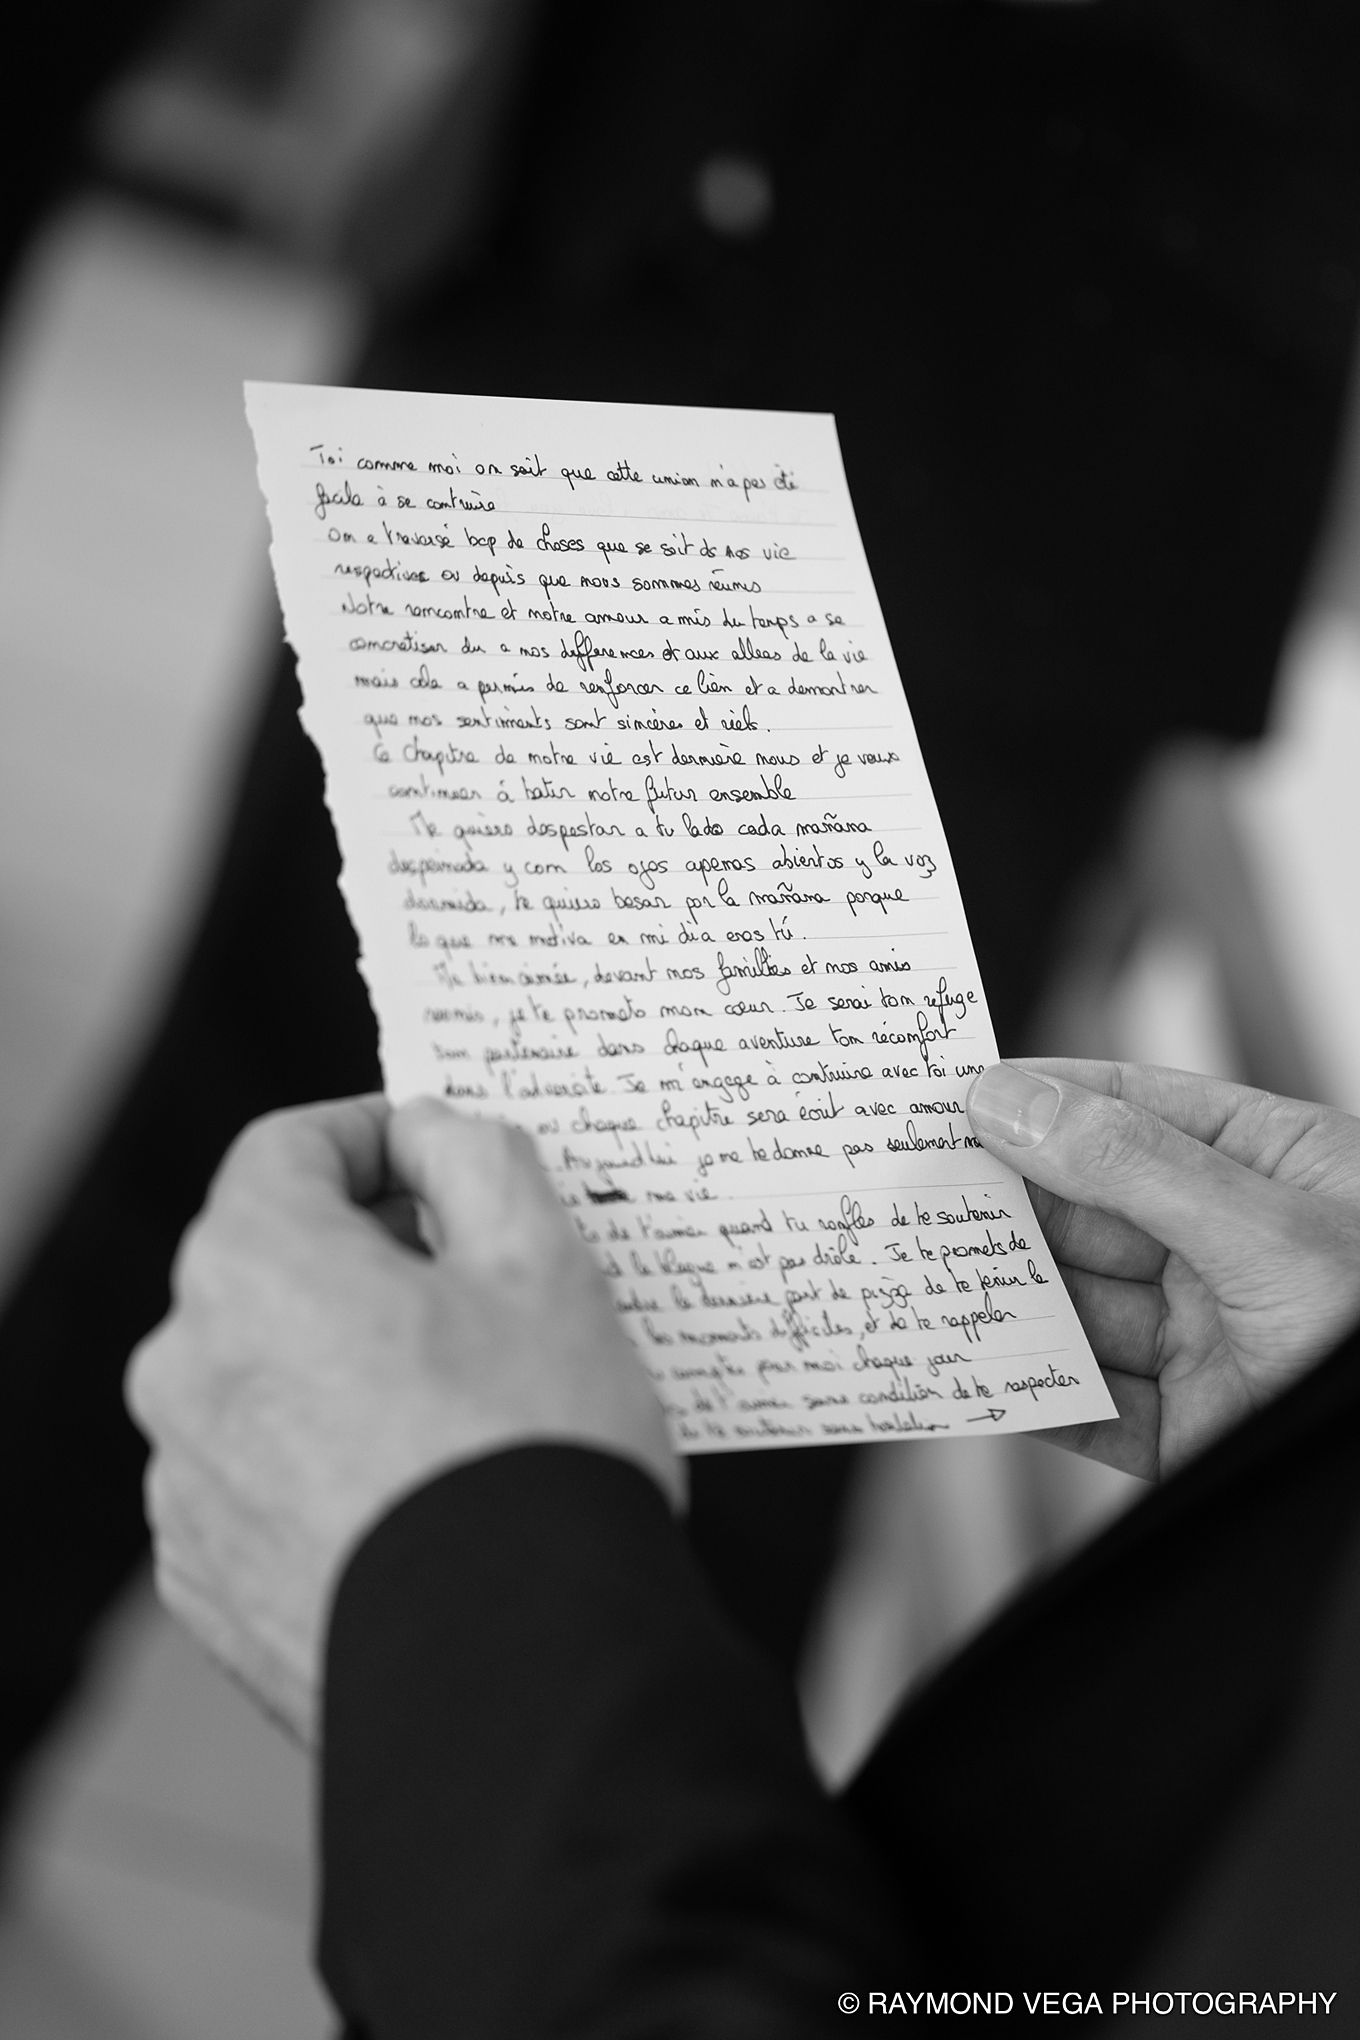 Toi comme moi on sait que cette union n'a pas été
facile à se contruire
On a traversé bcp de choses que se soit ds nos vie
respectives ou depuis que nous sommes réunis
Notre rencontre et notre amour a mis du temps a se
concretiser du a nos differences et aux alleas de la vie
mais cela a permis de renforcer ce lien et a demontrer
que nos sentiments sont sincères et réels.
Ce Chapitre de notre vie est derrière nous et je veux
continuer à batir notre futur ensemble
Me quiero despestar a tu lado cada mañana
despeinada y com los ojos apenas abiertos y la voz
dormida, te quiero besar por la mañana porque
lo que me motiva en mi dia eres tú.
Ma bien aimée, devant nos familles et nos amis
reunis, je te promets mon cœur. Je serai ton refuge
ton partenaire dans chaque aventure ton réconfort
dans l'adversité. Je m'engage à contruire avec toi une
ou chaque chapitre sera écrit avec amour
Aujourd'hui je ne te donne pas seulement ma
ma vie.
de t'aimer quand tu ronfles de te soutenir
la blague n'est pas drôle. Je te promets de
la dernière part de pizza de te tenir la
les moments difficiles, et de te rappeler
comptes pour moi chaque jour
de t'aimer sans condition de te respecter
de te soutenir sans →
© RAYMOND VEGA PHOTOGRAPHY